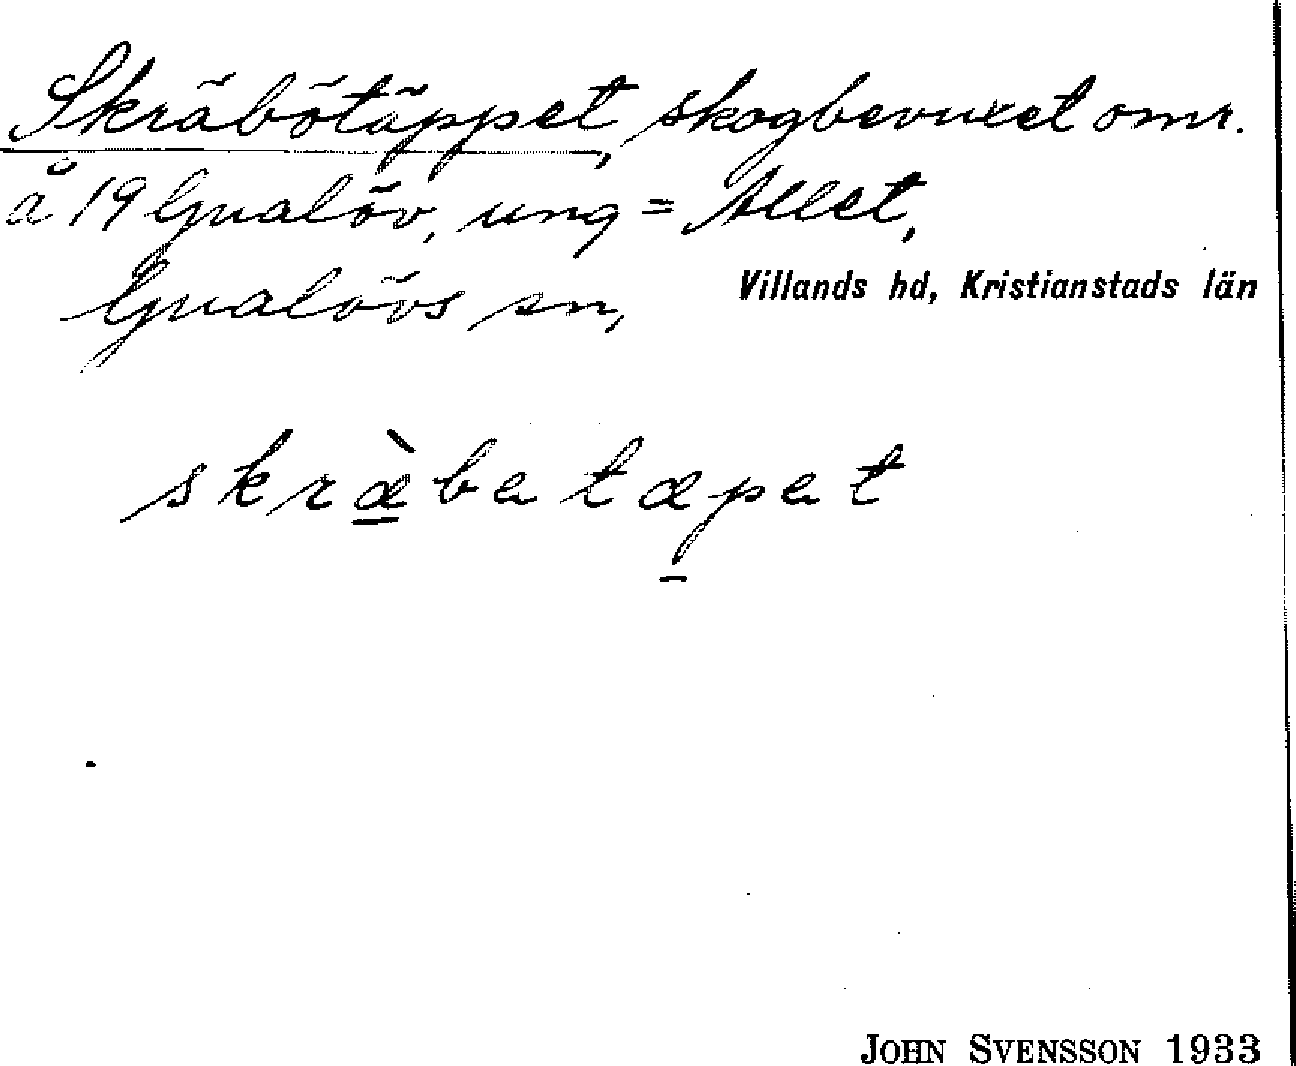 Skräbötäppet, skogbevuxet omr.
å 19 Gualöv, ung = Allet,
Gualövs sn, Villands hd, Kristianstads län
skræ̀batæpat
JOHN SVENSSON 1933